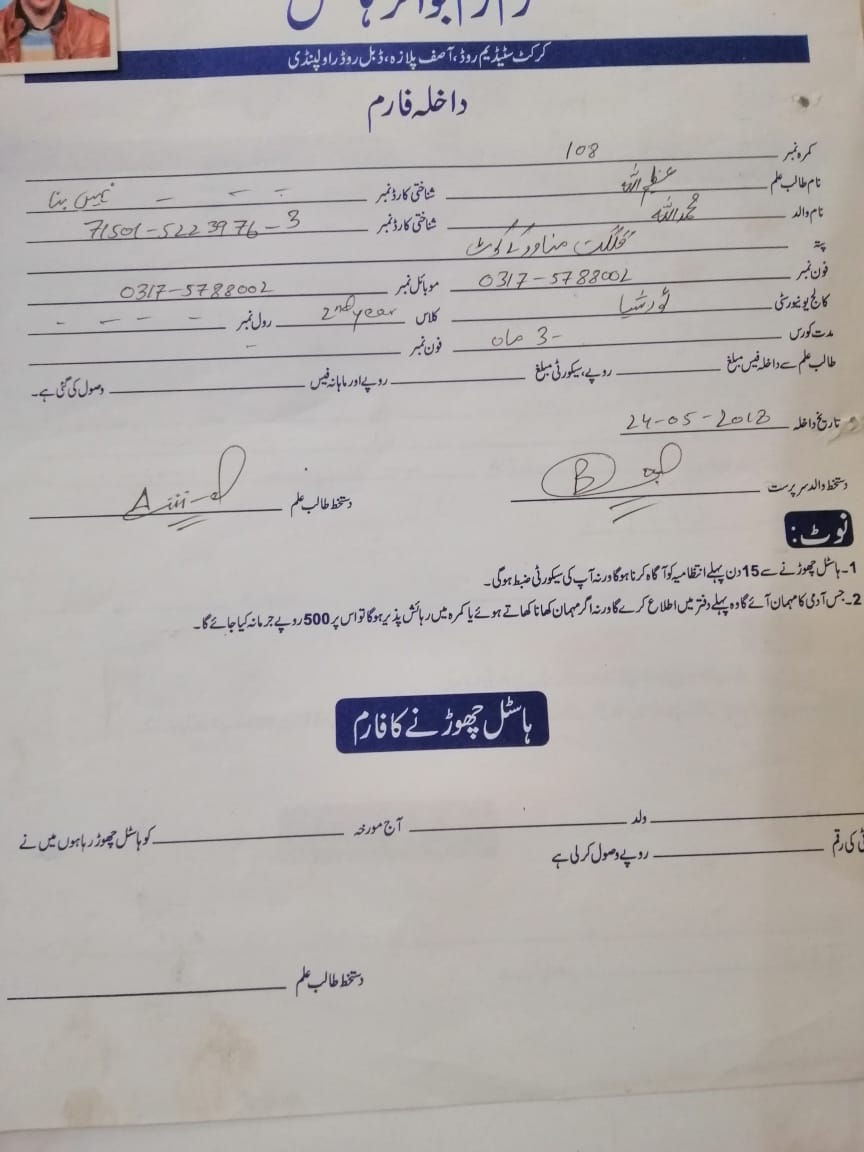 کرکٹ سٹیڈیم روڈ، آصف پلازہ، ڈبل روڈ راولپنڈی
داخلہ فارم
کمرہ نمبر 108
نام طالب علم عظیم اللہ شناختی کارڈ نمبر نہیں بنا
نام والد محمد اللہ شناختی کارڈ نمبر 71501-5223976-3
پتہ گلگت مناور
فون نمبر 0317-5788002 موبائل نمبر 0317-5788002
کالج یونیورسٹی کلاس 2nd year رول نمبر - - - -
مدت کورس 3 ماہ فون نمبر -
طالب علم سے داخلہ فیس مبلغ روپے، سیکورٹی مبلغ روپے اور ماہانہ فیس وصول کی گئی ہے۔
تاریخ داخلہ 24-05-2018
دستخط والد سرپرست دستخط طالب علم
نوٹ:
1۔ ہاسٹل چھوڑنے سے 15 دن پہلے انتظامیہ کو آگاہ کرنا ہوگا ورنہ آپ کی سیکورٹی ضبط ہوگی۔
2۔ جس آدمی کا مہمان آئے گا وہ پہلے دفتر میں اطلاع کرے گا ورنہ اگر مہمان کھانا کھاتے ہوئے یا کمرہ میں رہائش پذیر ہوگا تو اس پر 500 روپے جرمانہ کیا جائے گا۔
ہاسٹل چھوڑنے کا فارم
ولد آج مورخہ کو ہاسٹل چھوڑ رہا ہوں میں نے
کی رقم روپے وصول کر لی ہے
دستخط طالب علم